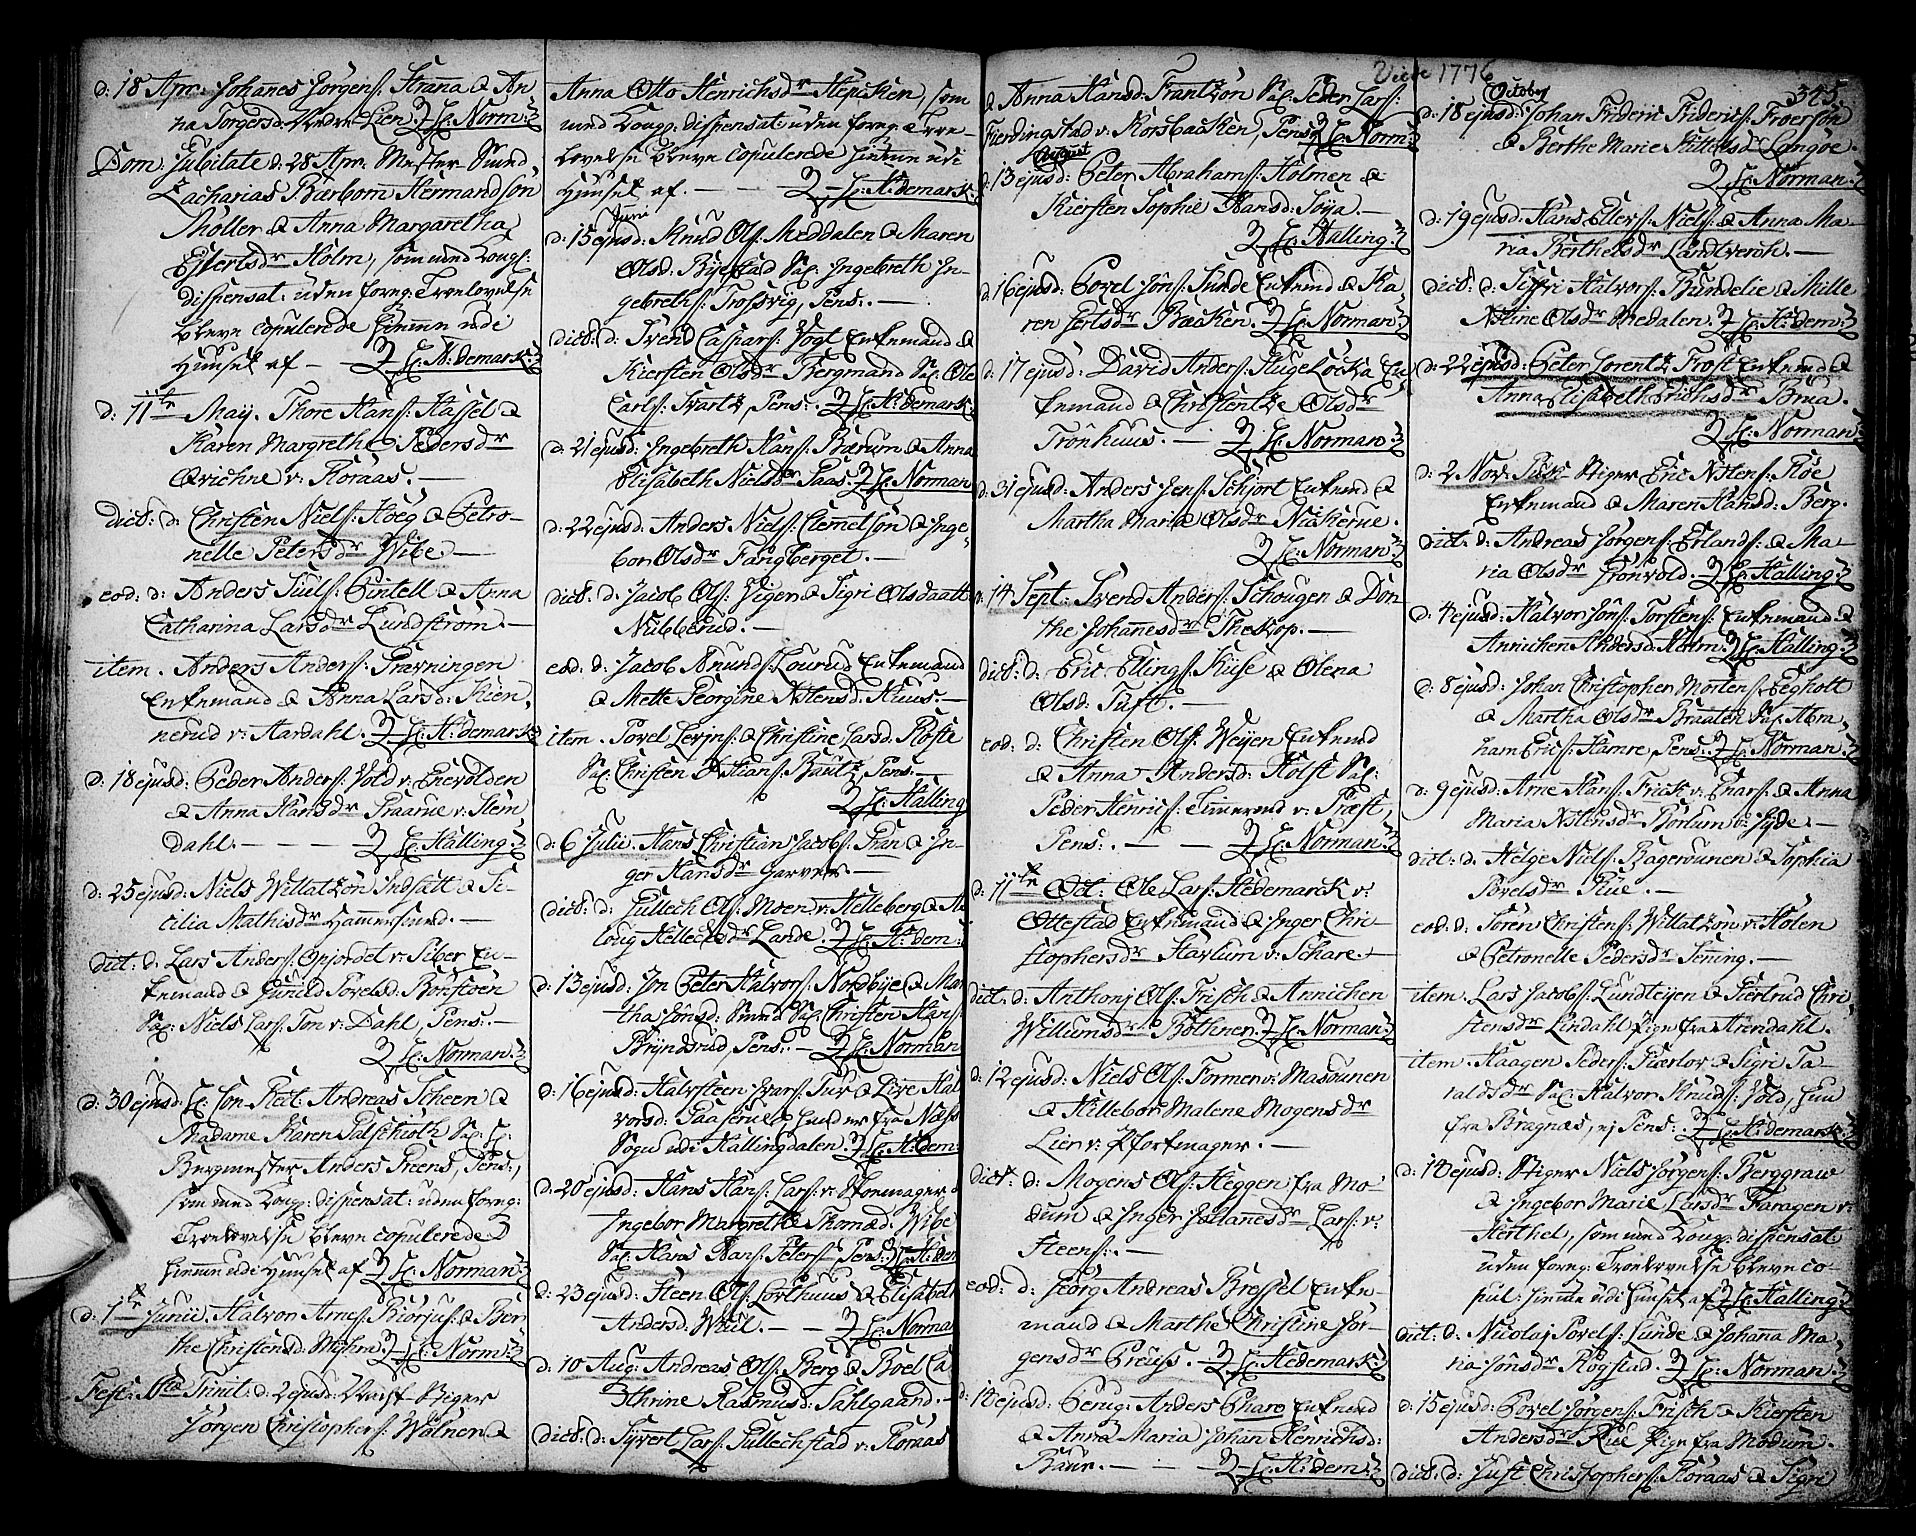 d: 18 Apr: Johanes Jørgens: Stranna & An
na Torgersd: Vedre Lien. Hr: Norm:
Dom: Jubilate d: 28 Apr: Mester Svend
Zacharias Bærborn Hermandsön
Möller & Anna Margaretha
Eylertsdr Holm, som med Kongl:
dispensat: uden forng: Troelovelse
bleve copulerede hiemme udi
Huuset af — Hr: H:demark
d: 11te May. Thore Hans: Hassel &
Karen Margrethe Pedersdr
Qvichne v: Koraas. —
dict: d: Christen Niels: Höeg & Petro-
nelle Petersdr Wibe —
eod: d: Anders Juels: Pintell & Anna
Catharina Larsdr Lundström. —
item. Anders Anders: Prærningen
Enkemand & Anna Larsd: Kien,
nerud v: Aardahl. Hr: H:demark
d: 18 ejusd: Peder Anders: Vold v: Enevolden
& Anna Hansdr Praarue v: Stem
dahl. — Hr: Halling
d: 25 ejusd: Niels Willatzön Indsatt & Ci-
cilia Mathisdr Hammersund. —
dict: d: Lars Anders: Opjordet v: Siber En-
kemand & Gunild Povelsd: Bönstöen
Sal: Niels Lars: Ton v: Dahl, Pens: —
Hr: Norman
d: 30 ejusd: Hr: Con-Rect. Andreas Scheen &
Madame Karen Palschioth Sal: Hr:
Bergmester Anders Preens, Pens:,
som med Kong: dispensat: uden forng:
Troelovelse bleve copulerede
hiemme udi Huuset af Hr: Norman
d: 1te Junii. Halvor Arnes: Biörjus: & Ber
the Christensd: Mohm. Hr: Norm:
Fest: SStæ Trinit. d: 2 ejusd: Stiger
Jörgen Christophers: Wölner &
Anna Otto Henrichsdr Hepcken, som
med Kongg: dispensat: uden forng: Troe-
lovelse bleve copulerede hiemme udi
Huuset af. — Hr: H:demark:
Juni
d: 15 ejusd: Knud Ols: Meddalen & Maren
Olsd: Byestad Sal: Ingebreth In-
gebreths: Trossvig, Pens: —
dict: d: Svend Caspars: Vogt Enkemand &
Kiersten Olsdr Bergmand Sal: Ole
Carls: Svartz, Pens: Hr: H:demark:
d: 21 ejusd: Ingebreth Hans: Bærum & Anna
Elisabeth Nielsdr Paas. Hr: Norman
d: 22 ejusd: Anders Niels: Clemetsön & Inge,
bor Olsdr Fangberget. —
dict: d: Jacob Ols: Vigen & Sigri Olsdaatt
Nubberud. —
eod: d: Jacob Anunds: Lourud Enkemand
& Mette Georgine Nilsensd: Huus. —
item. Povel Levjns: & Christine Larsd: Roste
Sal: Christen Kistians: Bautz, Pens: —
Hr: Halling
d: 6 Julii. Hans Christian Jacobs: Fran & In-
ger Hansdr Garver. —
dict: d: Gullech Ols: Moen v: Helleberg & A
loug Hellechsdr Lande. Hr: H:dem:
d: 13 ejusd: Jon Peter Halvors: Nordbye & Mar
tha Jönsd: Smed Sal: Christen Hans:
Bryndsrud, Pens: — Hr: Norman
d: 16 ejusd: Halvsteen Ivars: Tuv & Live Hal
vorsd: Gaaserud, hun er fra Næss
Sogn udi Hallingdalen. Hr: H:dem:
d: 20 ejusd: Hans Hans: Lars: v: Stenmager &
Ingebor Margrethe Thomæd: Wibe
Sal: Hans Hans: Peters: Pens: Hr: H:dem
d: 23 ejusd: Steen Ols: Corthuus & Elisabeth
Andersd: Weil. — Hr: Norman
d: 10 Aug: Andreas Ols: Berg & Boel Ca
thrine Rasmusd: Sahlgaard. —
dict: d: Syvert Lars: Gullechstad v: Koraas
Viede 1776
345.
& Anna Hansd: Frantzön Sal: Peder Lars:
Fierdingstad v: Korsbacken, Pens: Hr: Norm:
August
d: 13 ejusd: Peter Abrahams: Holmen &
Kiersten Sophie Hansd: Soya. —
Hr: Halling
d: 16 ejusd: Povel Jöns: Sunde Enkemd & Ka,
ren Gertsdr Backen. Hr: Norman
d: 17 ejusd: David Anders: Hugelocka En,
kemand & Christentze Olsdr
Trönhuus. — Hr: Norman
d: 31 ejusd: Anders Jens: Schjort Enkemd &
Martha Maria Olsdr Nickerue.
Hr: Norman
d: 14 Sept: Svend Anders: Schougen & Dor
the Johannesdr Theskop. —
dict: d: Eric Ellings: Kiise & Olena
Olsd: Tuft. —
eod: d: Christen Ols: Weyen Enkemd
& Anna Andersd: Holst Sal:
Peder Henrics: Timmerud v: Præst,
Pens: — Hr: Norman
d: 11te Oct: Ole Lars: Hedemarck v:
Ottestad Enkemand & Inger Chri-
stophersdr Havlum v: Schare. —
dict. d: Anthonj Ols: Frisch & Annichen
Willumsdr Böthner. Hr: Norman
d: 12 ejusd: Niels Ols: Formen v: Masounen
& Hillebor Malene Mogensdr
Lier v: Pfortmager. —
dict. d: Mogens Ols: Heggen fra Mo-
dum & Inger Johannesdr Lars: v:
Steens: —
eod: d: Georg Andreas Bressel Enke-
mand & Marthe Christine Jör-
gensdr Preuss. — Hr: Hedemark
d: 18 ejusd: Perug: Anders Pharo Enkemd
& Anna Maria Johan Henrichsd:
Baur. — Hr: H:dem:
October
d: 18 ejusd: Johan Frideric Friderics: Froersön
& Berthe Marie Kittelsd: Langöe.
Hr: Norman
d: 19 ejusd: Hans Ellers: Niels: & Anna Ma-
ria Berthelsdr Landtveröh. —
dict: d: Siffri Halvors: Bundelie & Mille
Nilsine Olsdr Medalen. Hr: H:dem:
d: 22 ejusd: Peter Lorentz Frost Enkemd &
Anna Elisabeth Erichsdr Brua.
Hr: Norman
d: 2 Nov: Stiger Eric Nilsens: Röe
Enkemand & Maren Hansd: Berg.
dict. d: Andreas Jörgens: Erlands: & Ma-
ria Olsdr Grönvold. Hr: Halling
d: 4 ejusd: Halvor Jöns: Torstens: Enkemand &
Annichen Andersd: Holm. Hr: Halling
d: 8 ejusd: Johan Christopher Mortens: Segholt
& Martha Olsdr Braaten Sal: Abra,
ham Erics: Hamre, Pens: Hr: Norman
d: 9 ejusd: Arne Hans: Frick v: Enars: & Anna
Maria Nilsensdr Borlum v: Syde. —
dict: d: Helge Niels: Bagerounen & Sophia
Povelsdr Rue. —
eod: d: Sören Christens: Willatzön v: Holen
& Petronelle Pedersdr Sening. —
item. Lars Jacobs: Lundteyen & Giertrud Chri
stensdr Lindahl Pige fra Arendahl.
item. Haagen Peders: Kiærlov & Sigri Ta-
raldsdr Sal: Halvor Knuds: Vold, hun
fra Bragnæs, ej Pens: Hr: H:demark:
d: 14 ejusd: Stiger Niels Jörgens: Berggraw
& Ingebor Marie Larsdr Faragen v:
Herthel, som med Kong: dispensat
uden forng: Troelovelse bleve co-
pul: hiemme udi Huuset af Hr: Halling
dict: d: Nicolaj Povels: Lunde & Johanna Ma-
ria Jönsdr Rogstad. Hr: Norman
d: 15 ejusd: Povel Jörgens: Frisch & Kiersten
Andersdr Rue Pige fra Modum.
dict: d: Just Christophers: Koraas & Sigri